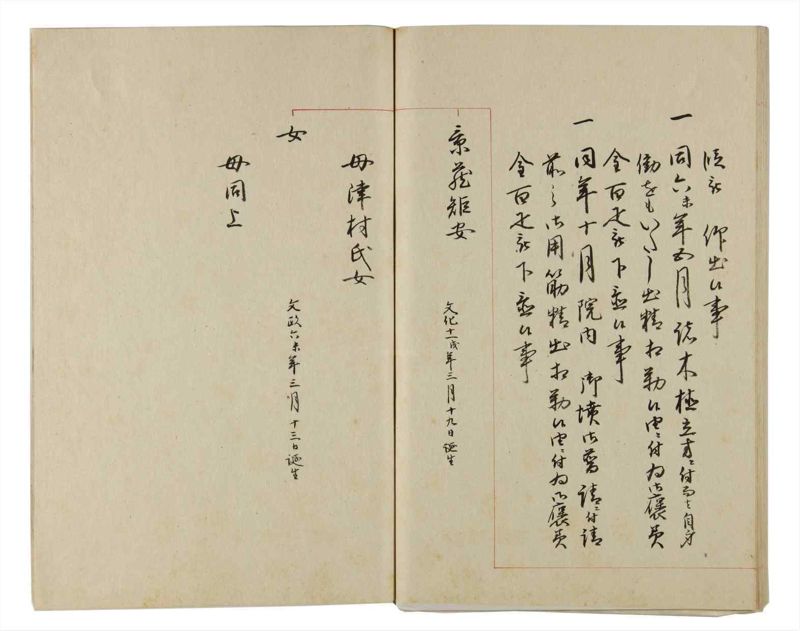 被 仰出候事
一 同六未年五月諸木植立方ニ付而も自身
働をもいたし出精相勤候ニ付為御褒美
金百疋被下置候事
一 同年十月院内 御墳御普請ニ付請
前之御用筋精出相勤候ニ付為御褒美
金百疋被下置候事
矩安
文化十一戌年三月十九日誕生
母津村氏女
女
文政六未年三月十三日誕生
母同上